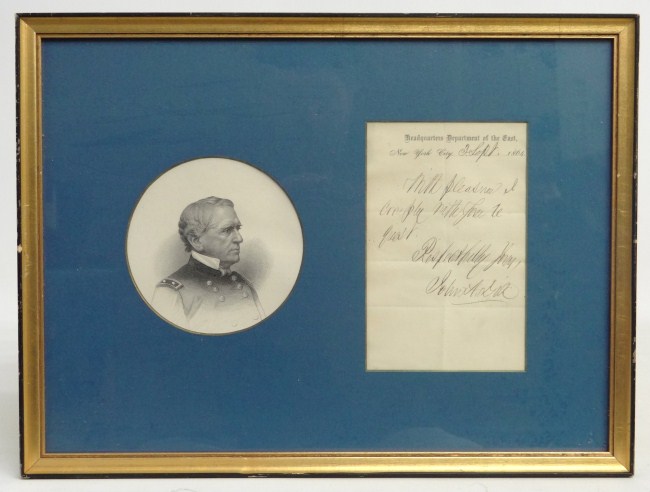 Headquarters Department of the East,
New York City, 2 Sept. 186
With pleasure I
comply with
Respectfully
John A. Dix